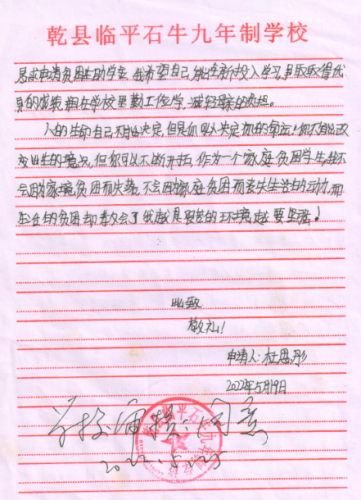 乾县临平石牛九年制学校
恳求申请贫困生助学金,我希望自己能全部投入学习,争取取得优
异的成绩,期在学校里勤工俭学,减轻家的负担。
人的生命自己不能决定,但是你可以决定你的命运!你不能改
变出生的境况,但你可以不断开拓,作为一个家庭贫困学生,我不
会因家境贫困而失落,不会因家庭贫困而丧失生活的动力,而
生活的贫困却教会了我越是艰苦的环境越要坚强!
此致
敬礼!
申请人:杜思彤
2022年5月19日
同意
2022.5.25